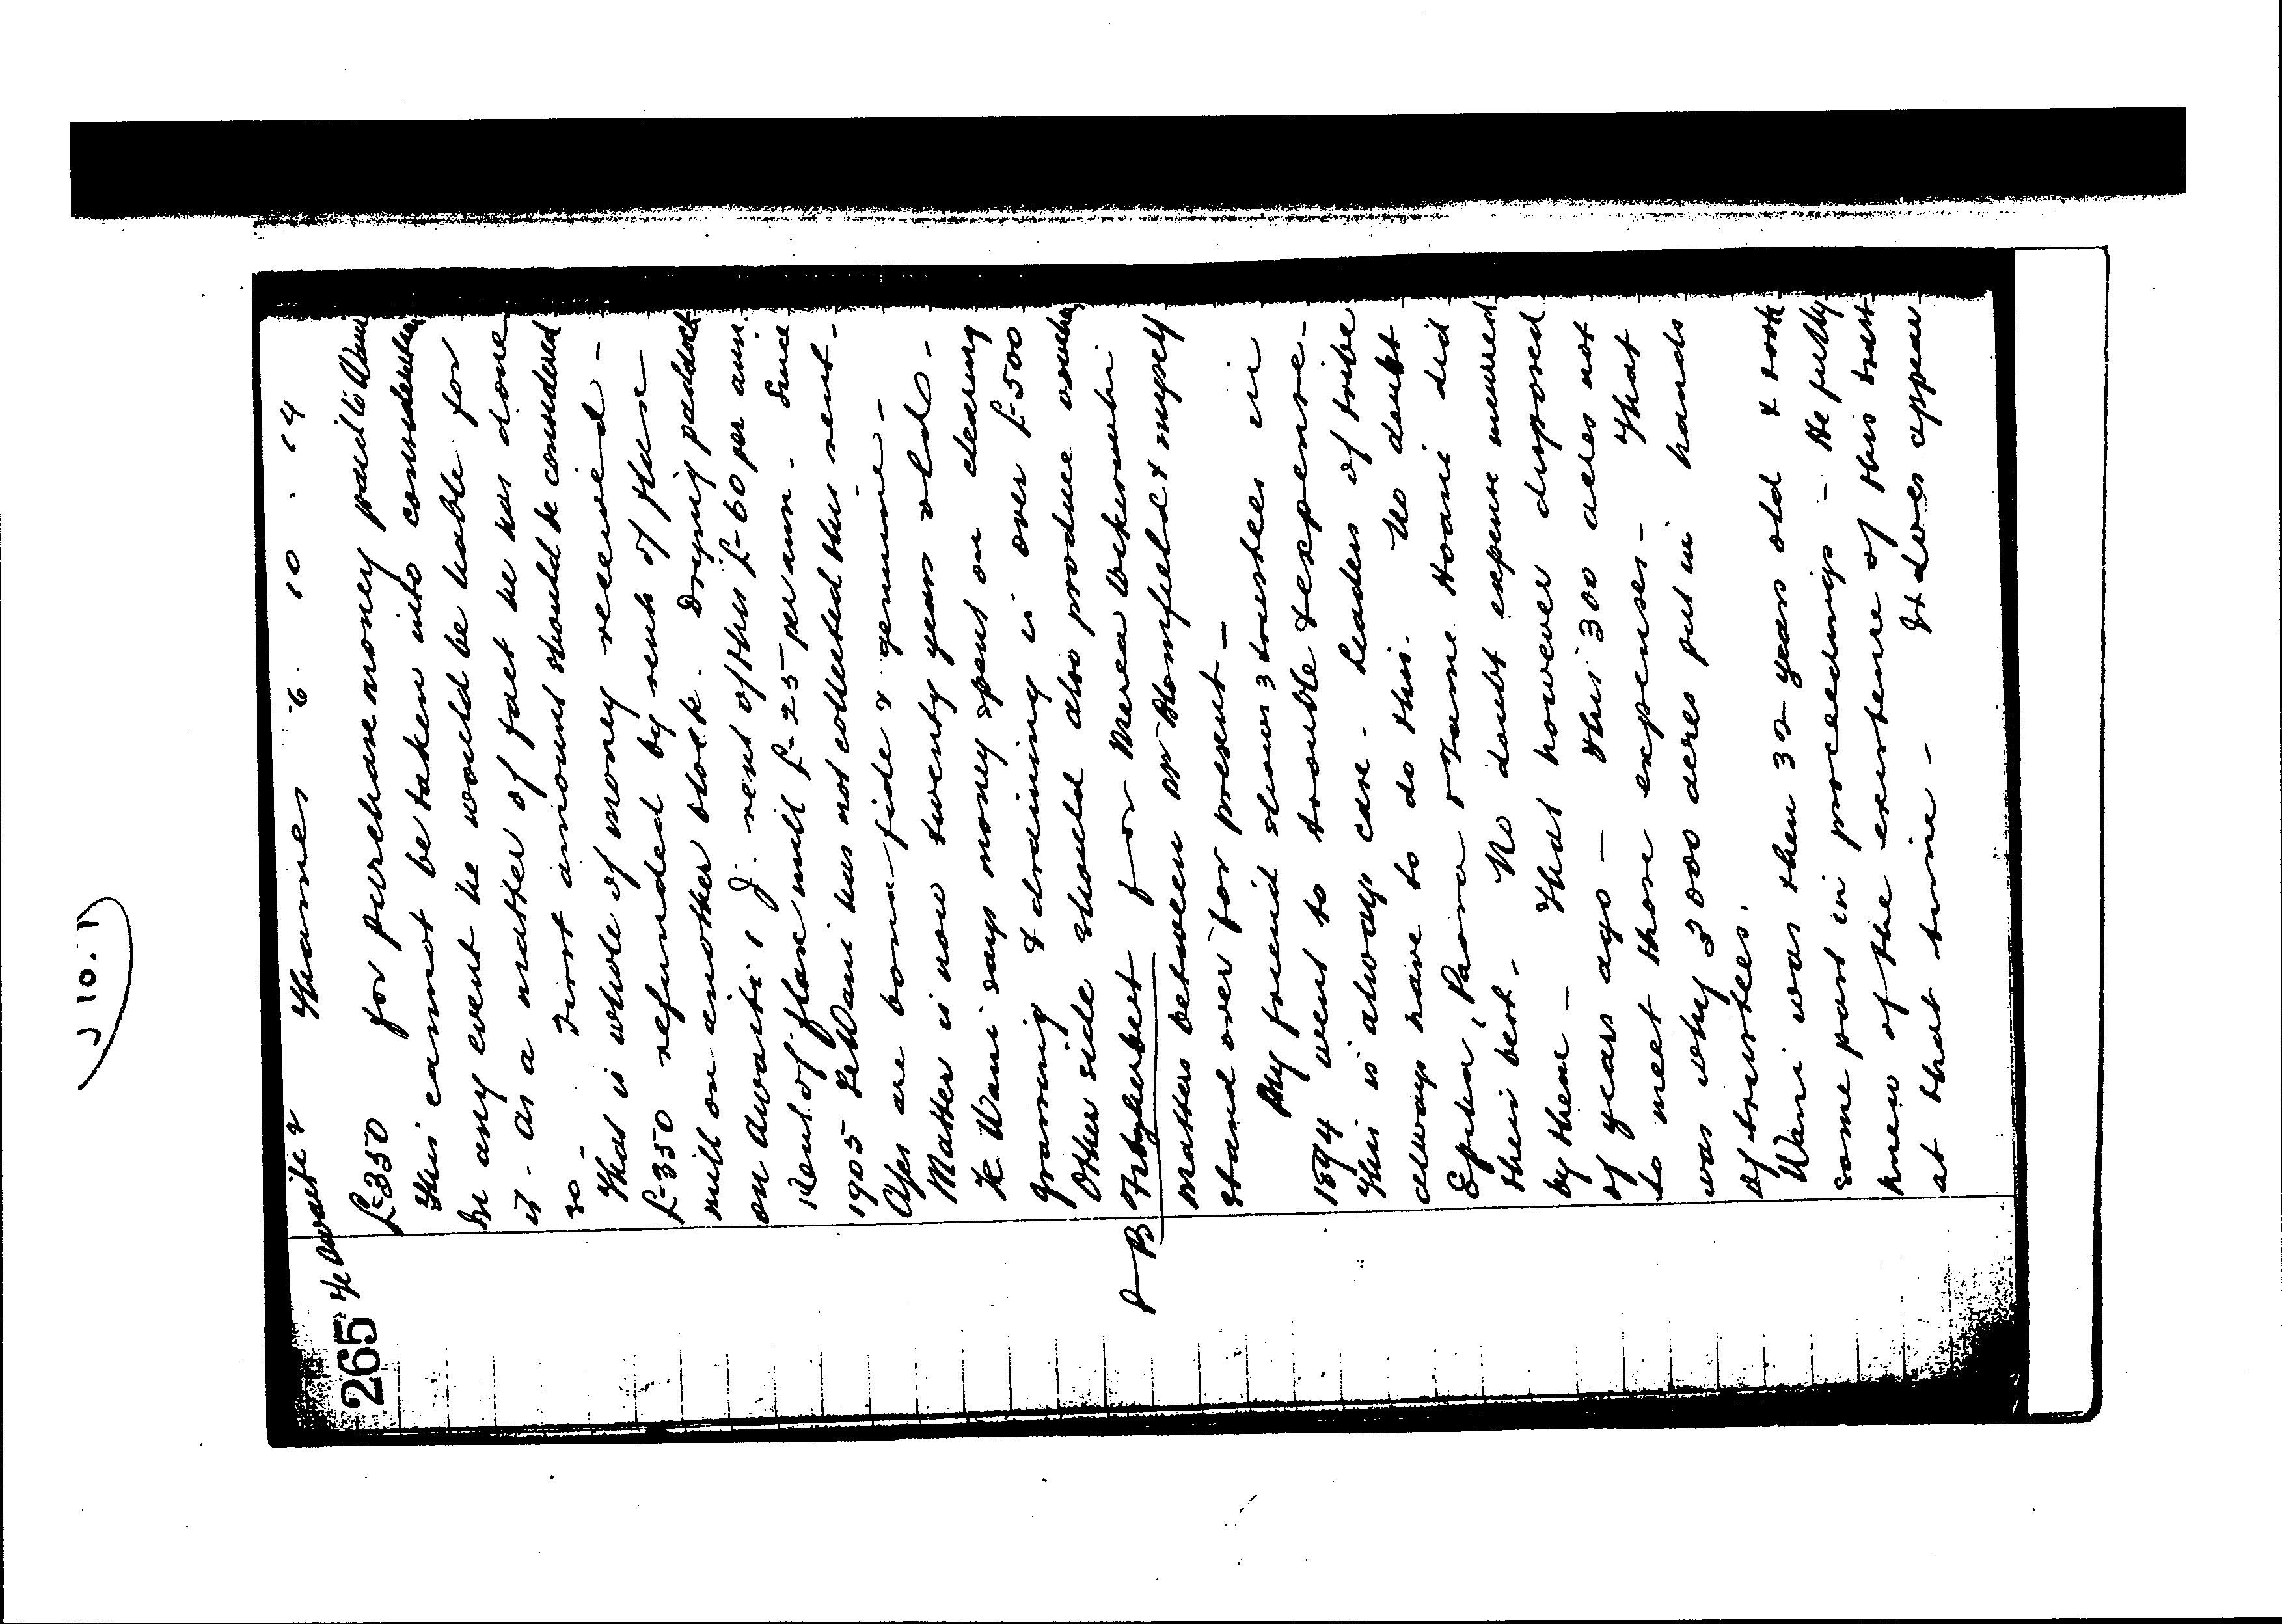 J 10.1
265
Te Awaiti 2 Thames 6. 10. 14
£350 for purchase money paid to Wani
This cannot be taken into consideration
In any event he would be liable for
it - As a matter of fact he has done
so - First amount should be considered
That is whole of money received -
£350 refunded by rents of flax
mill on another block. Drying paddock
on Awaiti 1 J. rent of this £60 per ann.
Rent of flax mill £25 per ann. Since
1905 Te Wani has not collected this rent -
Ayes are bona-fide & genuine -
Matter is now twenty years old -
Te Wani says money spent on clearing
grassing & draining is over £500
Other side should also produce vouchers
P B Fitzherbert for Merea Wikiriwhi
matters between Mr Blomfield & myself
stand over for present -
My friend shows 3 trustees in
1894 went to trouble & expense -
This is always case - Leaders of tribe
always have to do this. No doubt
Epiha, Paora & Tame Hoani did
their best - No doubt expense incurred
by them - That however disposed
of years ago - This 300 acres not
to meet those expenses - That
was why 3000 acres put in hands
of trustees.
Wani was then 32 years old & took
some part in proceedings - He fully
knew of the existence of this trust
at that time - It does appear